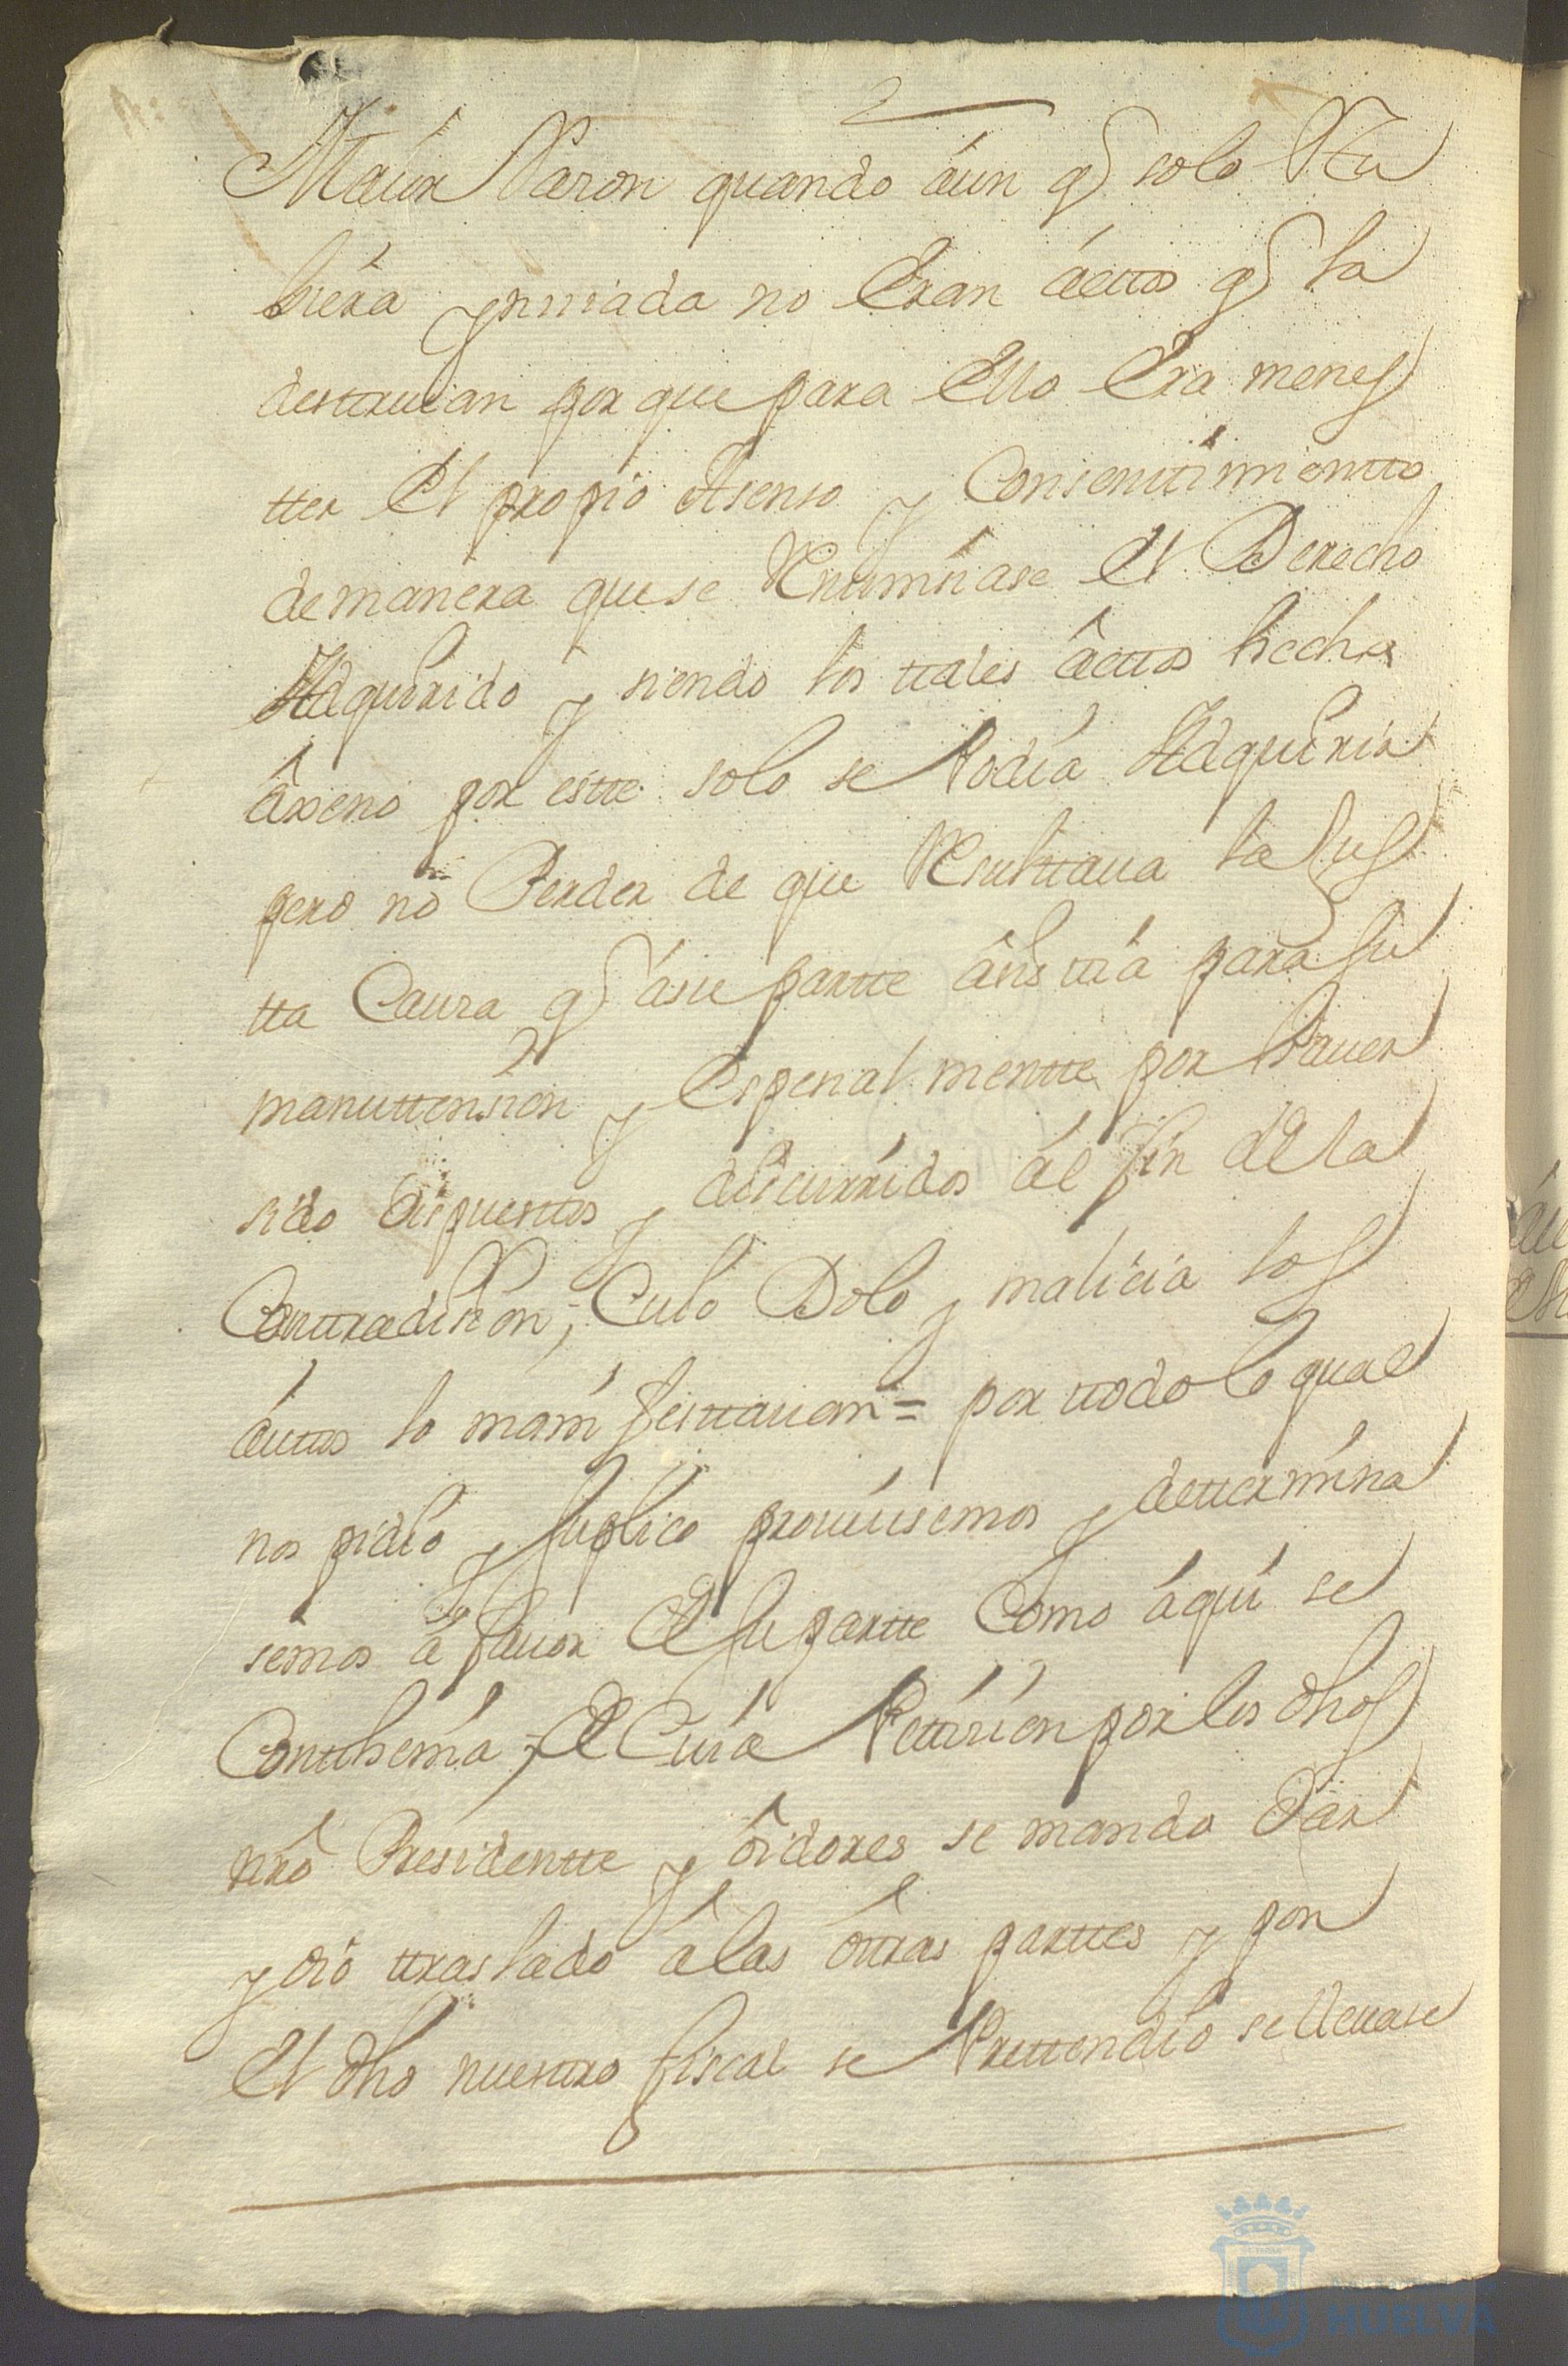 Maior Raron quando áun q̃ solo Stu
biéra ynuiada no Eran áctos q̃ la
destruian por que para Ello Era menes
tter El propio Asenso y Consenttimientto
demanera quese Renunsiase El Derecho
Adquirido y siendo los ttales âcttos hechos
âxeno por estte solo se Podia Adquirir
pero nó Perder de que Resulttaua la Jus
tta Causa q̃ ásu partte âsisttia para su
manuttension y Espesial mentte por hauer
sido dispuesttos y discurridos ál fin de la
Conttradision, Cuio Dolo y malicia los
áuttos lo manifesttauan = por ttodo lo qual
nos pidio y suplico prouiesemos y detterminá
semos á fauor de su partte Como áqui se
Contthenia, de Cuia Pettision por los dhos
nrô Presidentte y ôidores se mando Dar
y dió ttraslado â las ôttras parttes y por
El dho nuesttro fiscal se Prettendió se lleuase
HUELVA